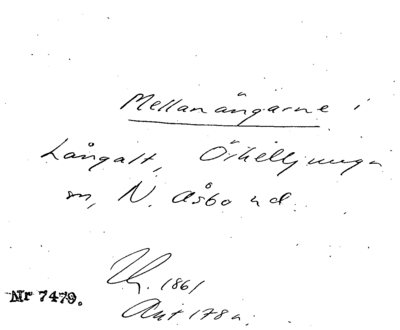 Mellanängarne i
Långalt, Örkelljunga
sn, N. Åsbo hd.
1861
Nr 7479.
Ant 178